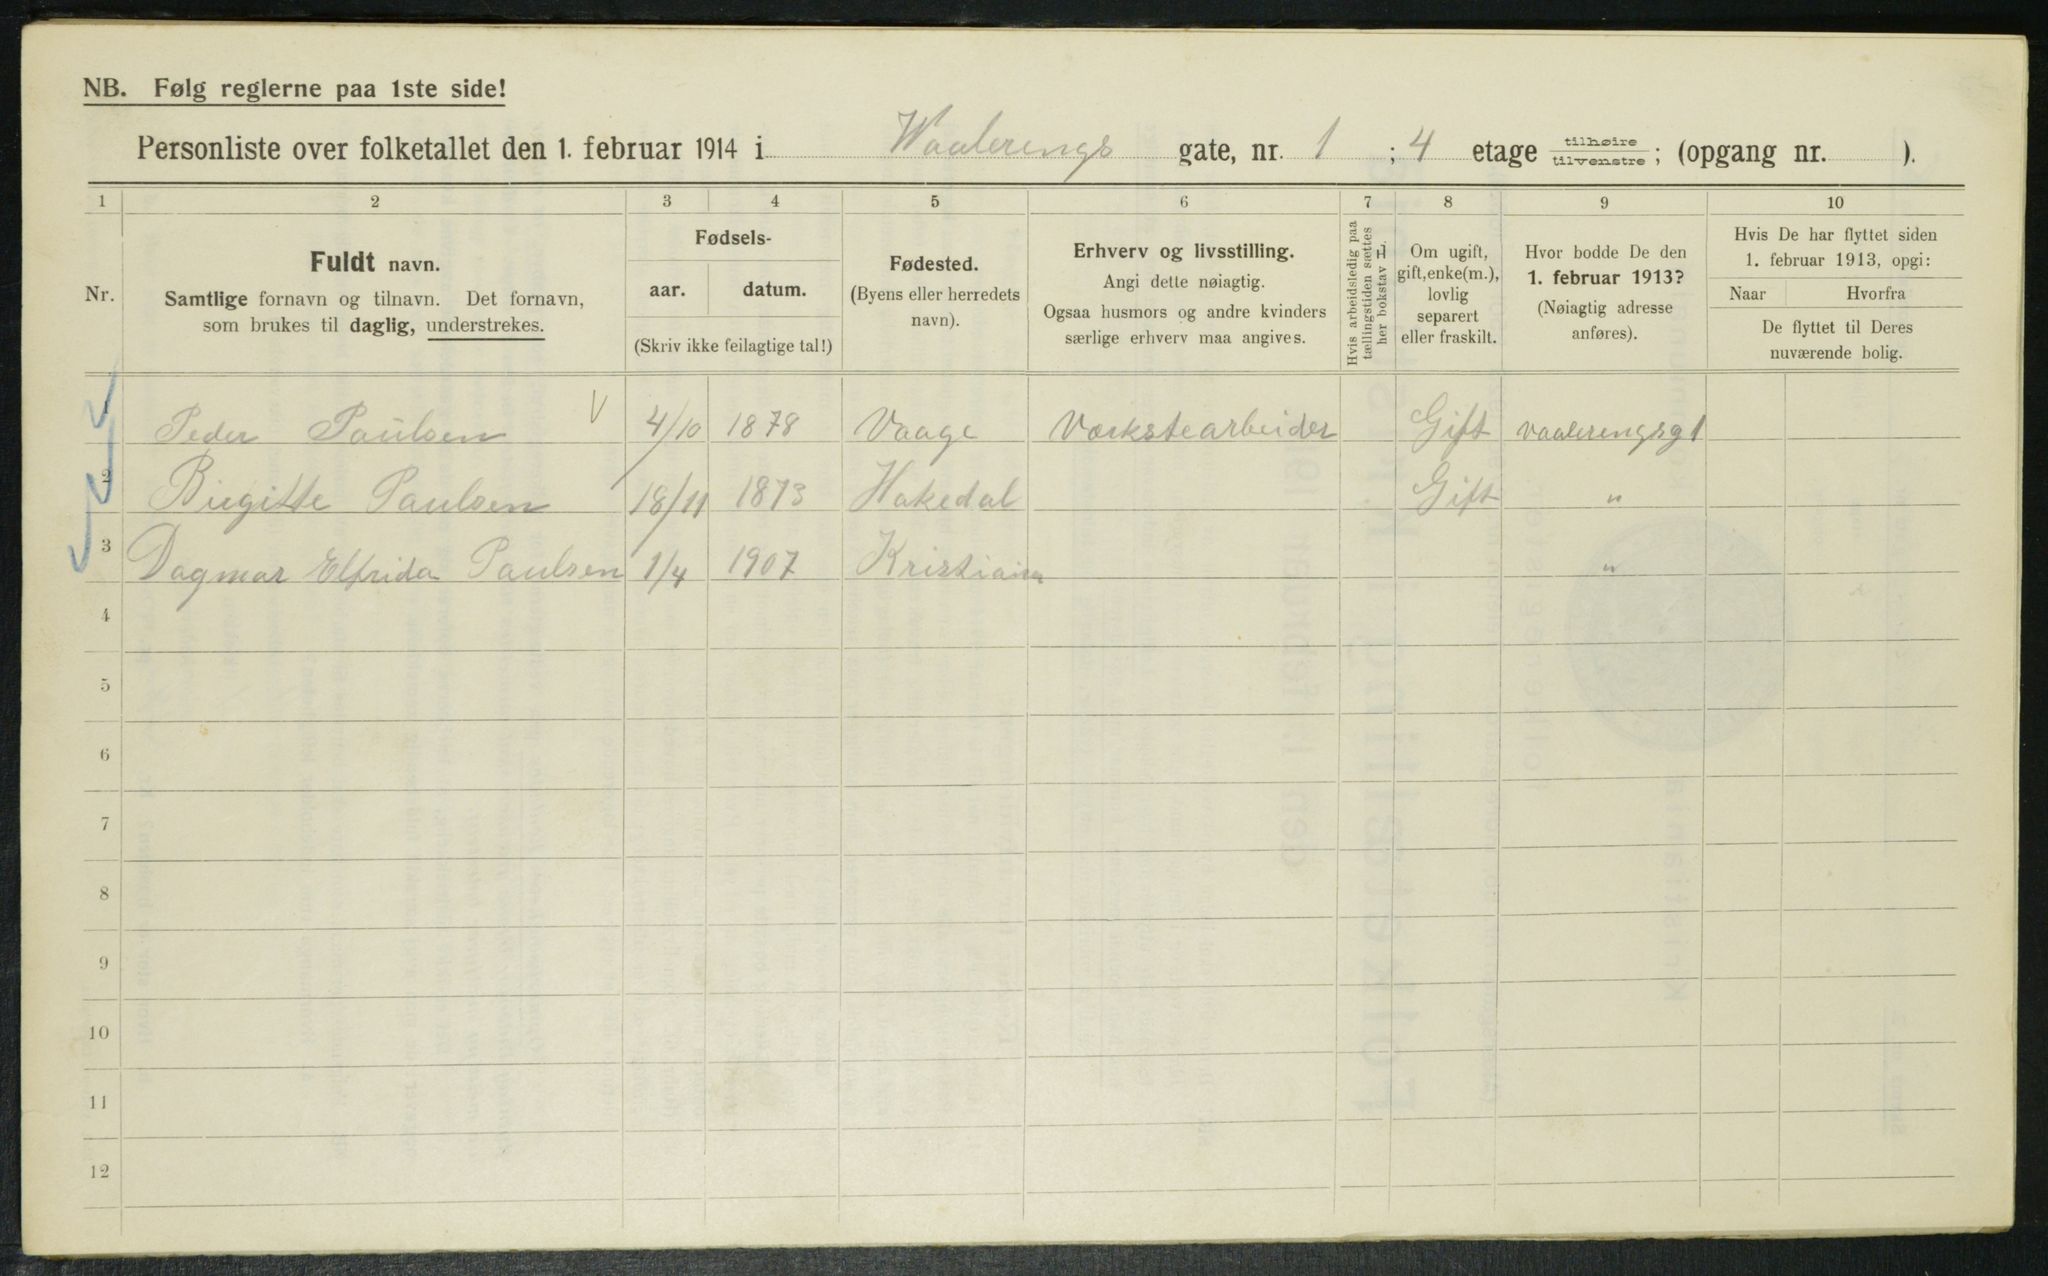 NB. Følg reglerne paa 1ste side!
Personliste over folketallet den 1. februar 1914 i Waalerengs gate, nr. 1 ; 4 etage tilhøire tilvenstre ; (opgang nr. ).
1 2 3 4 5 6 7 8 9 10
Nr.
Fuldt navn.
Samtlige fornavn og tilnavn. Det fornavn,
som brukes til daglig, understrekes.
Fødsels-
aar. datum.
(Skriv ikke feilagtige tal!)
Fødested.
(Byens eller herredets
navn).
Erhverv og livsstilling.
Angi dette nøiagtig.
Ogsaa husmors og andre kvinders
særlige erhverv maa angives.
Hvis arbeidsledig paa
tællingstiden sættes
her bokstav L.
Om ugift,
gift, enke(m.),
lovlig
separert
eller fraskilt.
Hvor bodde De den
1. februar 1913?
(Nøiagtig adresse
anføres).
Hvis De har flyttet siden
1. februar 1913, opgi:
Naar Hvorfra
De flyttet til Deres
nuværende bolig.
1 Peder Paulsen V 4/10 1878 Vaage Værkstearbeider Gift vaalerengsg 1
2 Birgitte Paulsen 18/11 1873 Hakedal Gift "
3 Dagmar Elfrida Paulsen 1/4 1907 Kristiania "
4
5
6
7
8
9
10
11
12